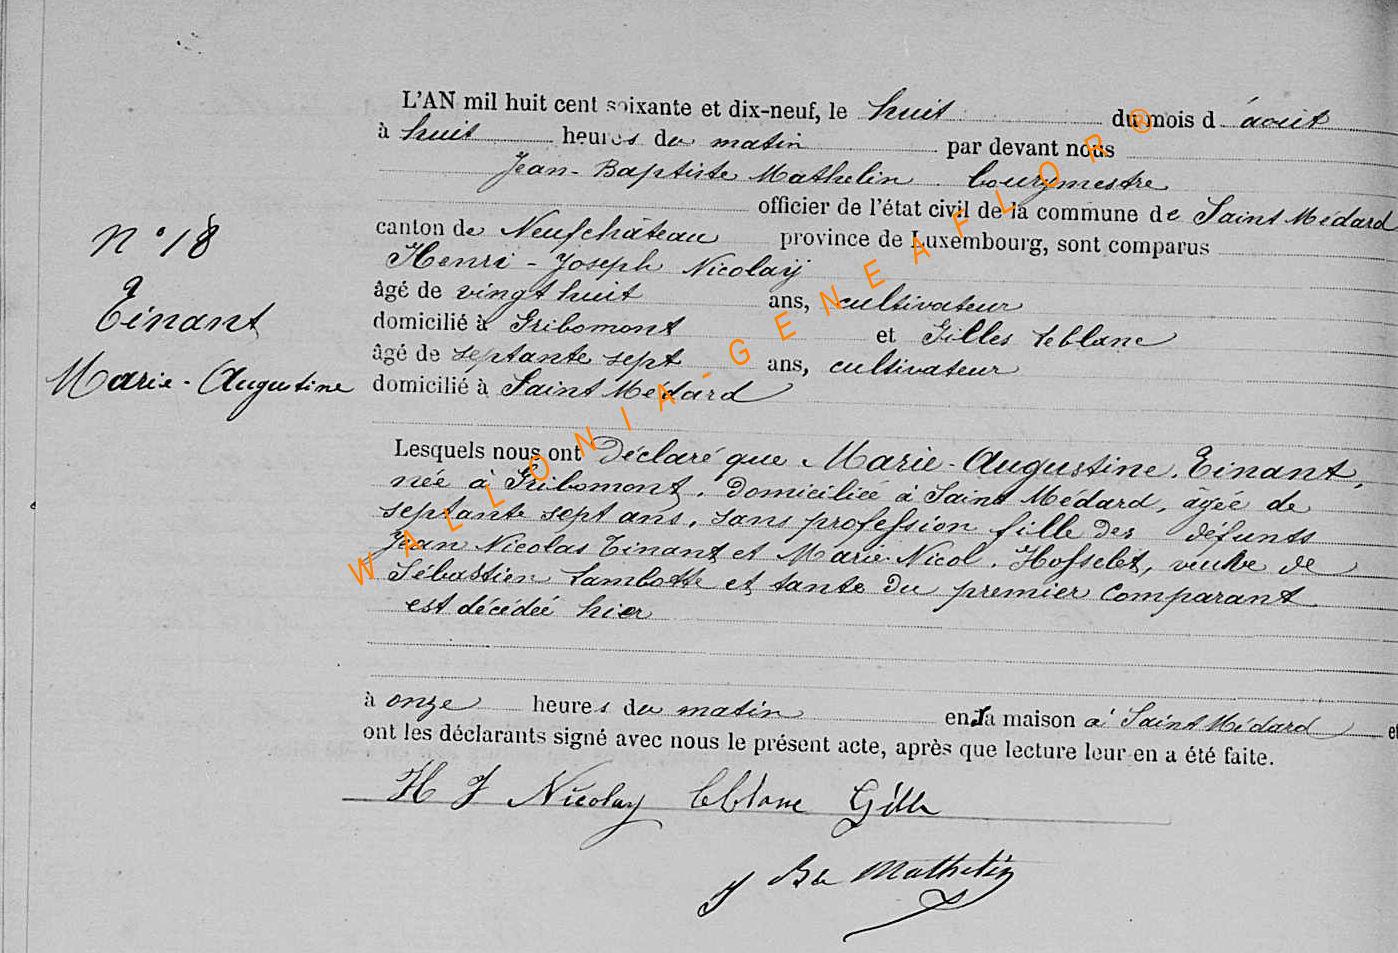 L'AN mil huit cent soixante et dix-neuf, le huit du mois d'août
à huit heures du matin par devant nous
Jean-Baptiste Mathelin bourgmestre
officier de l'état civil de la commune de Saint Médard
canton de Neufchâteau province de Luxembourg, sont comparus
Henri-Joseph Nicolaÿ
âgé de vingt huit ans, cultivateur
domicilié à Gribomont et Gilles Leblanc
âgé de septante sept ans, cultivateur
domicilié à Saint Médard
n° 18
Tinant
Marie-Augustine
Lesquels nous ont Déclaré que Marie-Augustine Tinant,
née à Gribomont, domiciliée à Saint Médard, agée de
septante sept ans, sans profession fille des défunts
Jean Nicolas Tinant et Marie Nicol. Hosselet, veuve de
Sébastien Lambotte et tante du premier comparant
est décédée hier
à onze heures du matin en la maison à Saint Médard et
ont les déclarants signé avec nous le présent acte, après que lecture leur en a été faite.
H J Nicolay leblanc Gille
J Bte Mathelin
WALLONIA-GENEAFLOR®